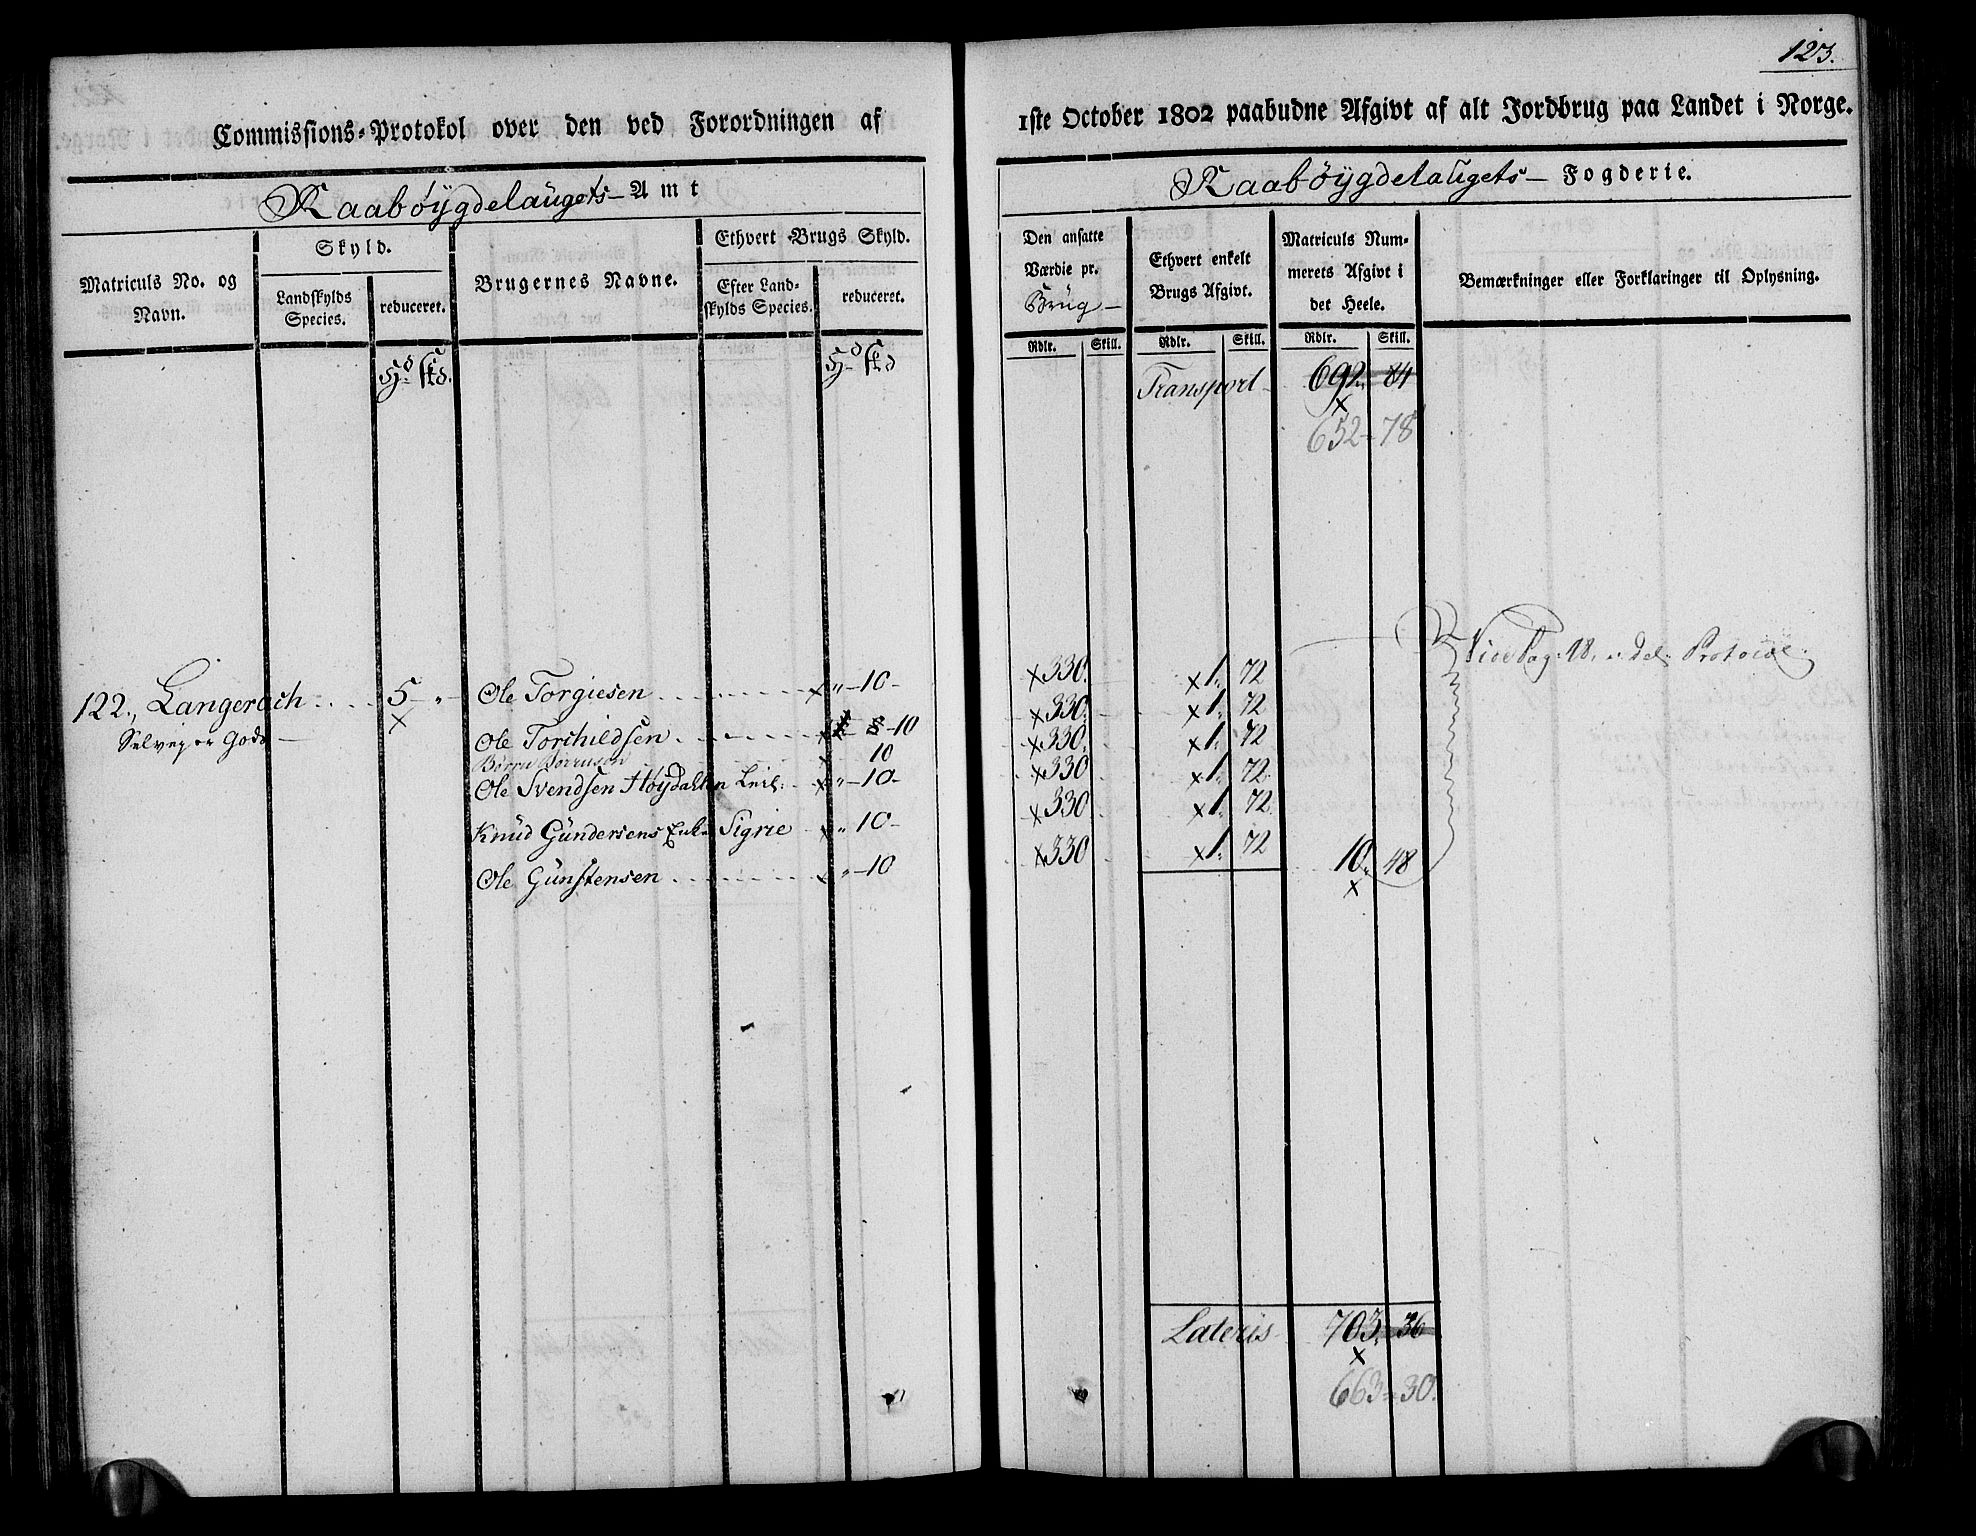 123.
Commissions-Protokol over den ved Forordningen af 1ste October 1802 paabudne Afgivt af alt Jordbrug paa Landet i Norge.
Raabøygdelaugets Amt
Raabøygdelaugets Fogderie.
Matriculs No. og Navn.
Skyld.
Landskylds Species.
reduceret.
Brugernes Navne.
Ethvert Brugs Skyld.
Efter Landskylds Species.
reduceret.
Den ansatte Værdie pr. Brug
Ethvert enkelt Brugs Afgivt.
Matriculs Nummerets Afgivt i det Heele.
Bemærkninger eller Forklaringer til Oplysning.
Rdlr. Skill. Rdlr. Skill. Rdlr. Skill.
Hd. skd.
Hd skd
Transport 692. 84
x
652 - 78
Vide Pag. 18. Protocol.
122., Langerach 5 - „ Ole Torgiesen x „ - 10 - x 330. x 1. 72
x
Selveyer Gods Ole Torchildsen x - 10 x 330. x 1. 72
x 10 x 330. x 1. 72
Ole Svendsen Høydalen Leil: x „ - 10 - x 330 x 1. 72
Knud Gundersens Enke Sigrie x „ 10 - x 330 x 1. 72
Ole Gunstensen x „ - 10 x 330 x 1. 72 10. 48
x
Lateris 703. 36
x
663 - 30.